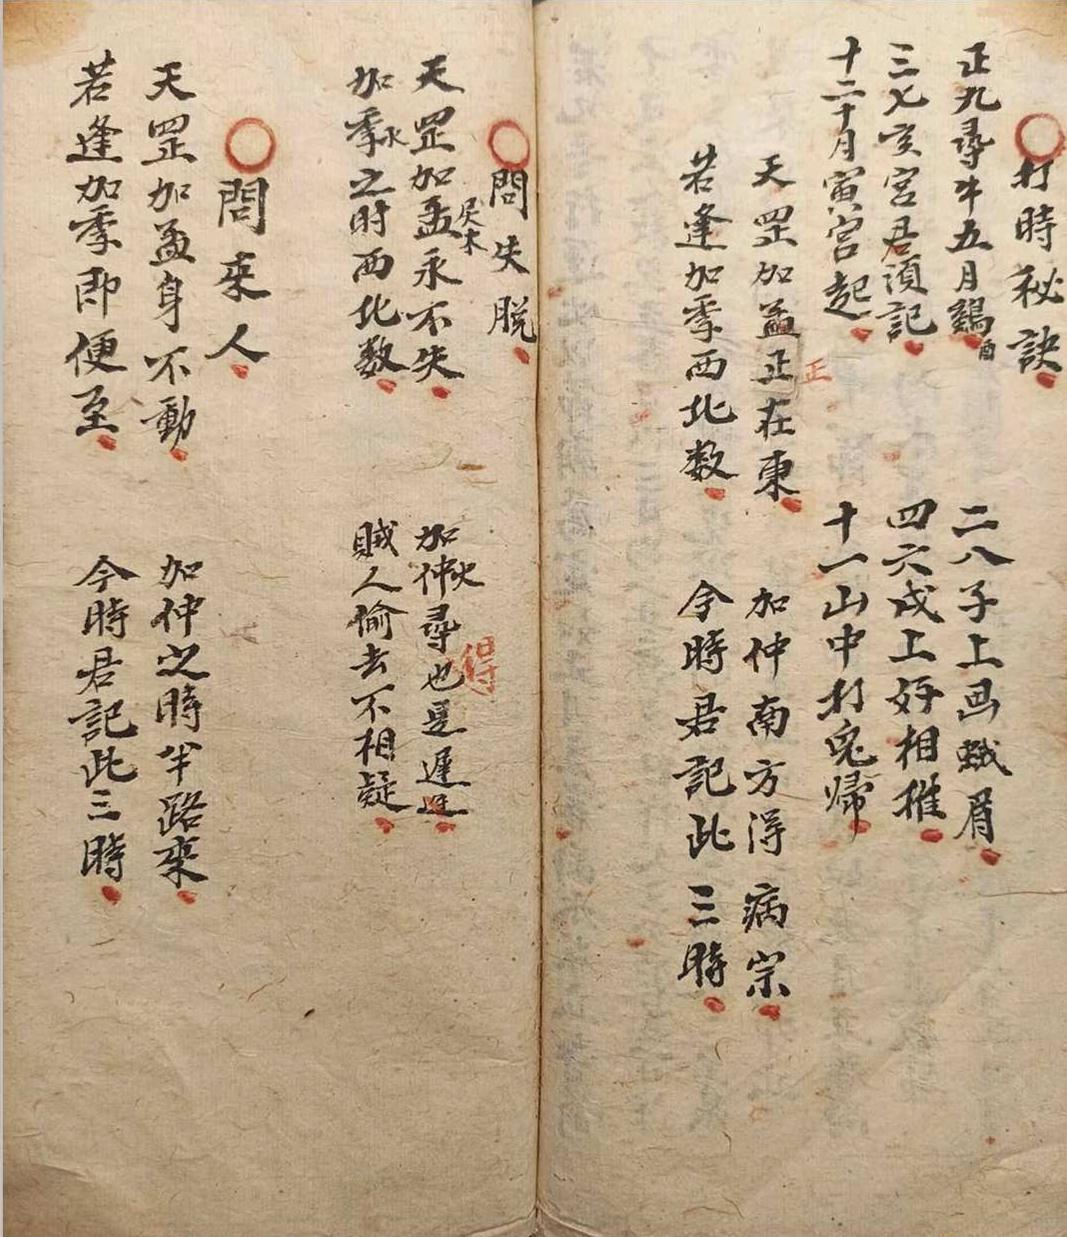 打時秘訣
正九尋牛五月鷄酉 二八子上画蛾眉
三七亥宮君須記 四六戌上好相推
十二十月寅宮起 十一山中打鬼歸
天罡加孟正在東 正 加仲南方得病宗
若逢加季西北数 今時君記此三時
問失脱
天罡加孟永不失 加仲火尋也是遲遲 得
加季水之時西北数 賊人偷去不相疑
問來人
天罡加孟身不動 加仲之時半路來
若逢加季即便至 今時君記此三時